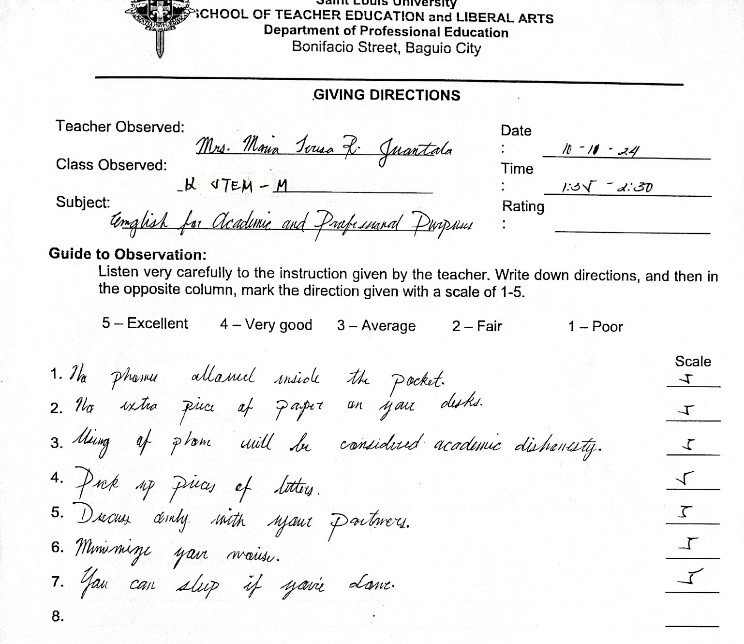 Saint Louis University
SCHOOL OF TEACHER EDUCATION and LIBERAL ARTS
Department of Professional Education
Bonifacio Street, Baguio City
GIVING DIRECTIONS
Teacher Observed: Mrs. Maria Teresa R. Juantala
Date : 10-10-24
Class Observed: STEM - M
Time : 1:35 - 2:30
Subject: English for Academic and Professional Purposes
Rating :
Guide to Observation:
Listen very carefully to the instruction given by the teacher. Write down directions, and then in
the opposite column, mark the direction given with a scale of 1-5.
5 – Excellent 4 – Very good 3 – Average 2 – Fair 1 – Poor
Scale
1. No phones allowed inside the pocket. 5
2. No extra piece of paper on your desks. 5
3. Using of phone will be considered academic dishonesty. 5
4. Pick up pieces of letters. 5
5. Discuss only with your partners. 5
6. Minimize your noise. 5
7. You can sleep if you're done. 5
8.